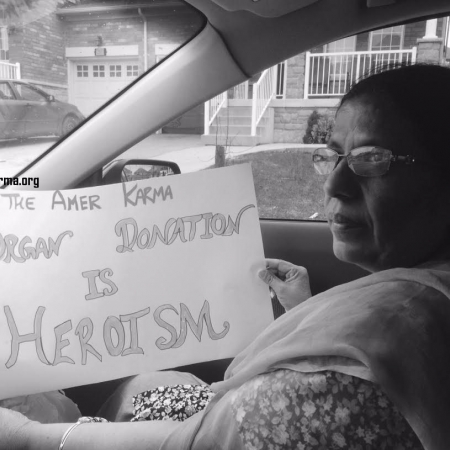 rma.org
THE AMER KARMA
ORGAN DONATION
IS
HEROISM